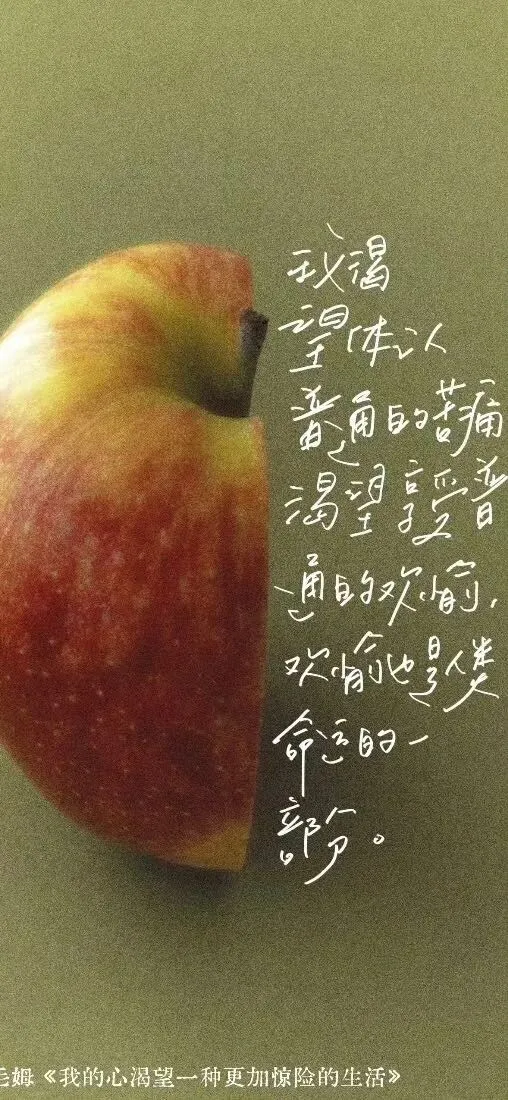 我渴
望体认
普通的苦痛
渴望享受普
通的欢愉，
欢愉也是人类
命运的一
部分。
毛姆《我的心渴望一种更加惊险的生活》